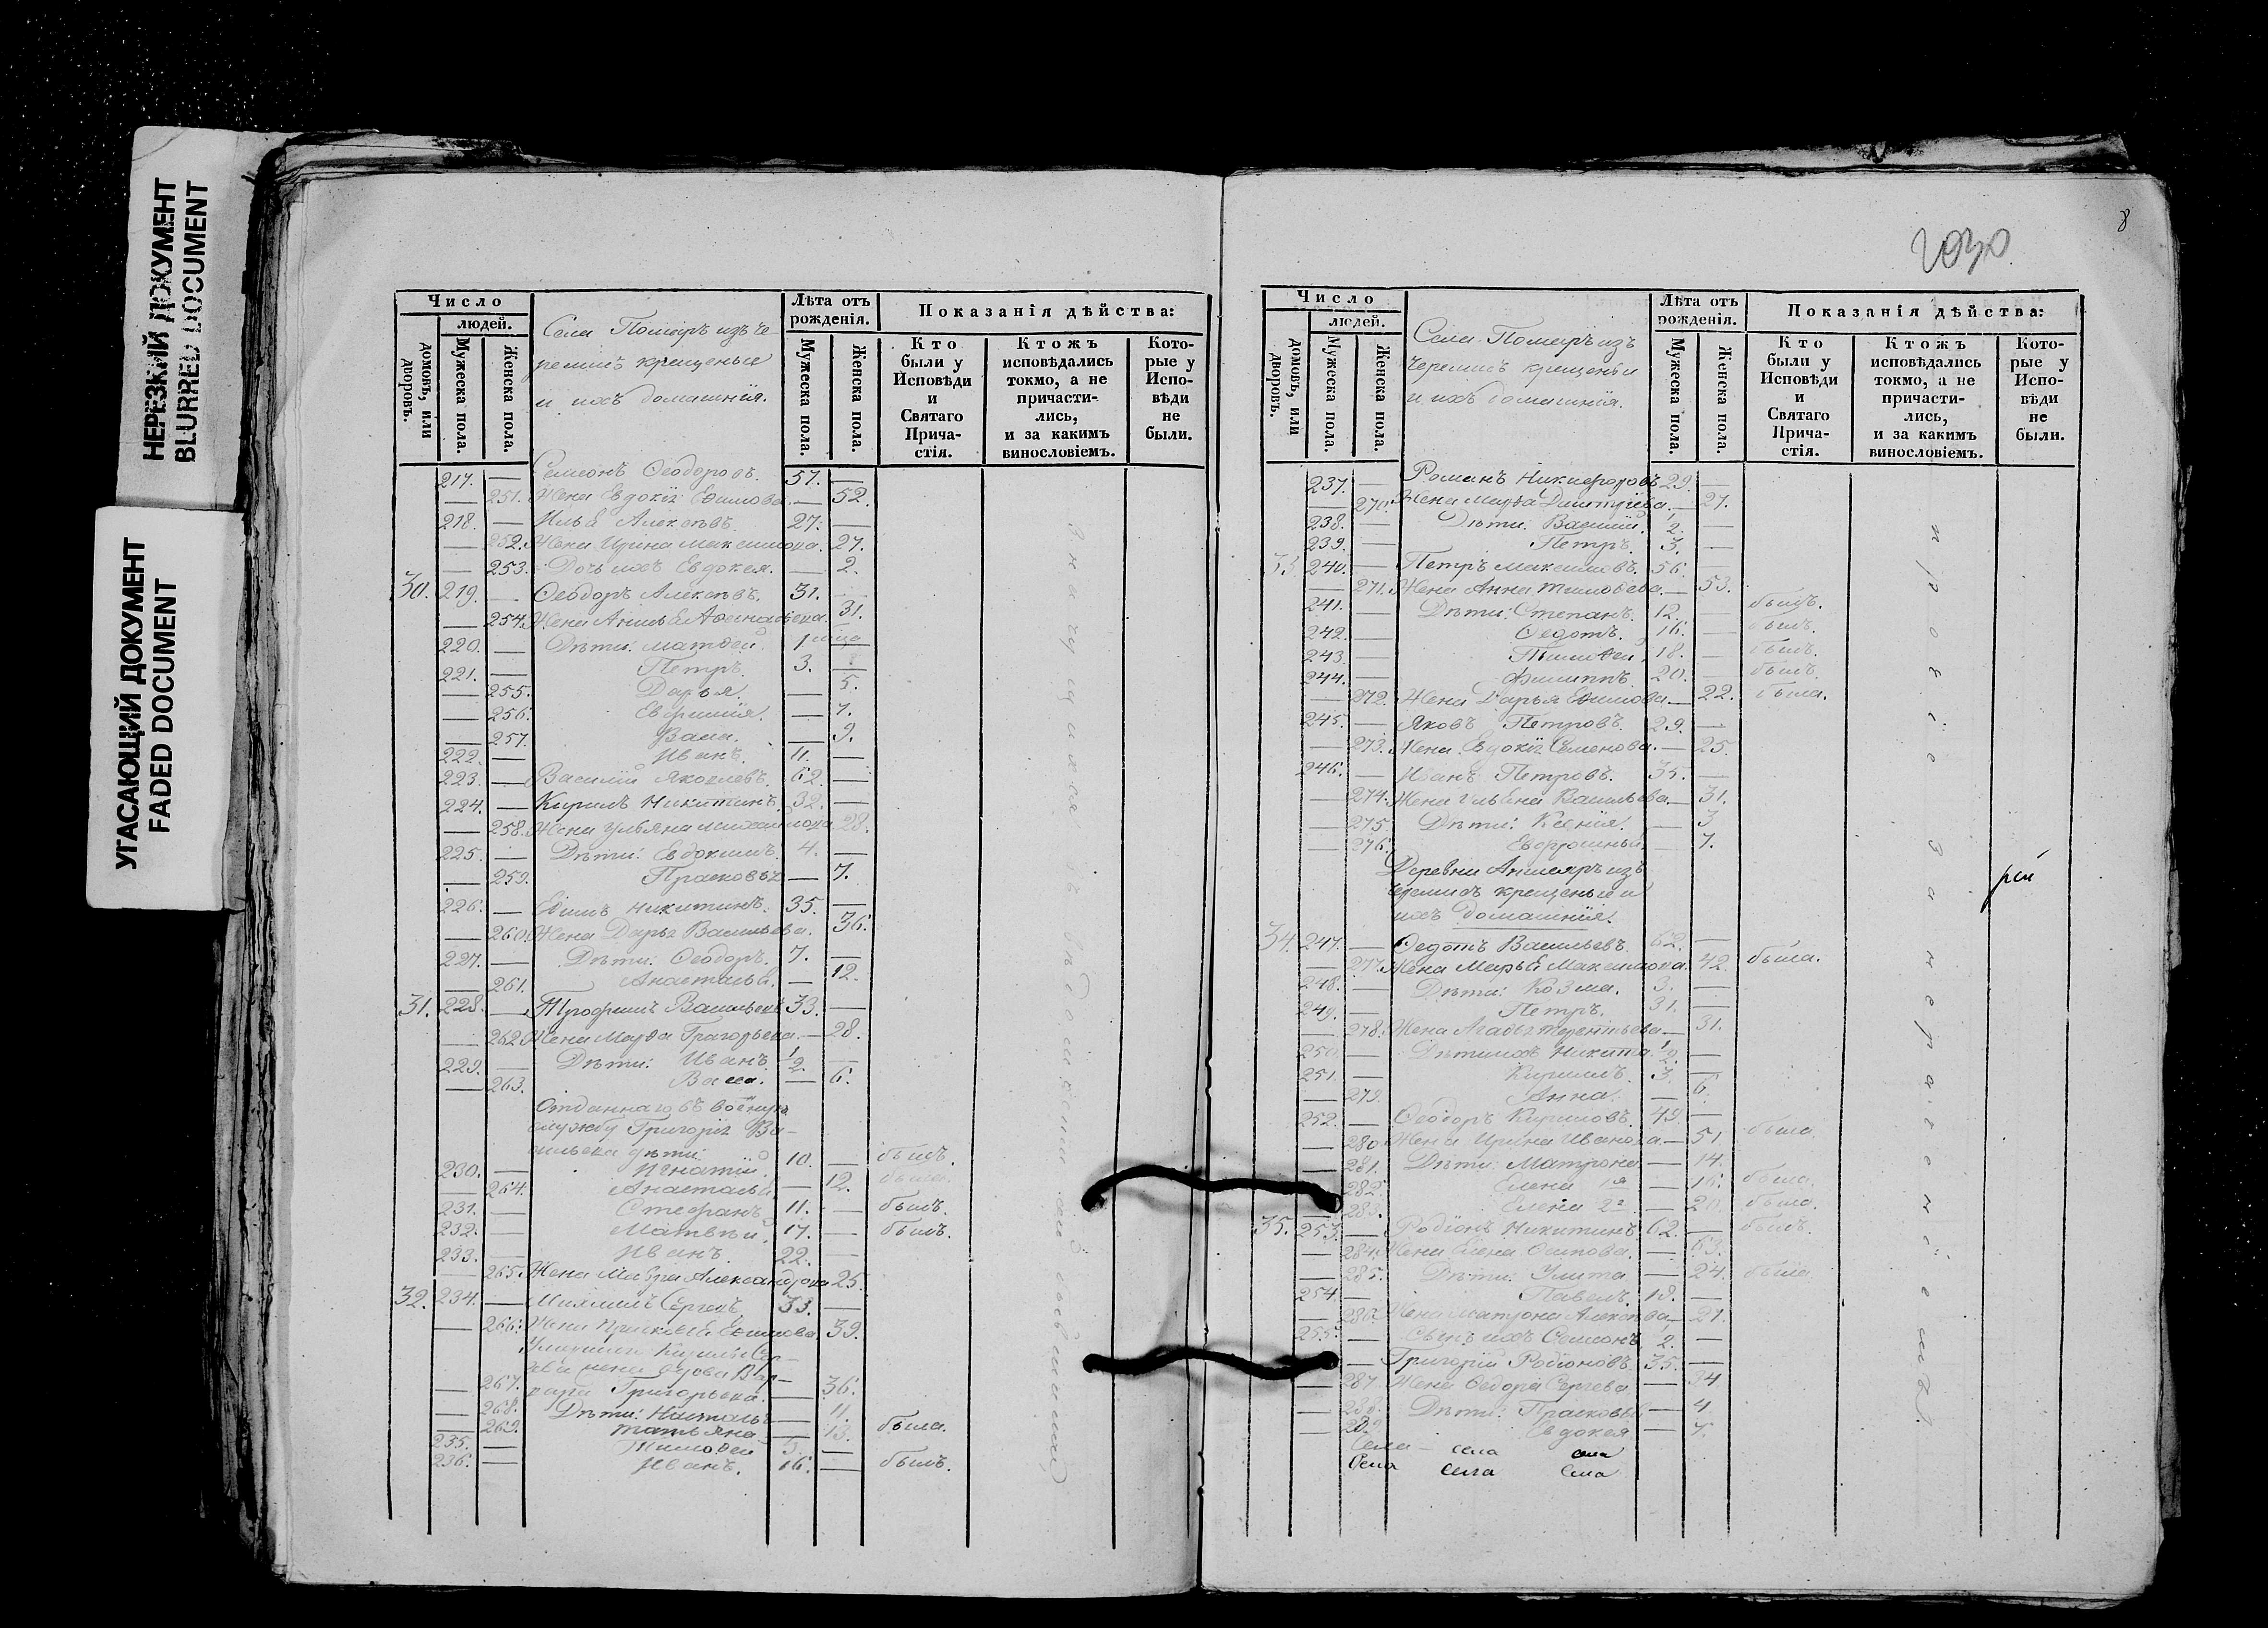 НЕРЕЗКИЙ ДОКУМЕНТ
BLURRED DOCUMENT
УГАСАЮЩИЙ ДОКУМЕНТ
FADED DOCUMENT
Число
людей.
домовъ, или дворовъ.
Мужеска пола.
Женска пола.
Села Помаръ изъ че-
ремисъ крещеные
и ихъ домашнія.
Лѣта отъ рожденія.
Мужеска пола.
Женска пола.
Показанія дѣйства:
Кто были у Исповѣди и Святаго Прича-стія.
Ктожъ исповѣдались токмо, а не причасти-лись, и за какимъ винословіемъ.
Кото-рые у Испо-вѣди не были.
217. — Семионъ Ѳеодоровъ. 57. —
— 251. Жена Евдокія Еѳимова. — 52.
218. — Илья Алексѣвъ. 27. —
— 252. Жена Ирина Максимова. 27.
— 253. Дочь ихъ Евдокея. — 2.
30. 219. — Ѳеодоръ Алексѣвъ. 31. —
— 254. Жена 31.
220. — Дѣти: Матѳей. 1
221. — Петръ. 3. —
— 255. Дарья. — 5.
— 256. Евфимія. — 7.
— 257. 9.
222. — Иванъ. 11. —
223. — Василій Яковлевъ. 62. —
224. — Кирилъ Никитинъ. 32. —
— 258. Жена Ульяна Михаилова 28.
225. — Дѣти: Евдокимъ. 4. —
— 259. Прасковья — 7.
226. — Еѳимъ Никитинъ. 35. —
— 260. Жена Дарья Васильева. 36.
227. — Дѣти: Ѳеодоръ. 7. —
— 261. Анастасья. — 12.
31. 228. — Трофимъ Васильевъ 33. —
262. Жена Марѳа Григорьева. — 28.
229. — Дѣти: Иванъ. 1/2. —
— 263. Васса. — 6.
Отданнаго въ военную
службу Григорія Ва-
сильева дѣти:
230. — Игнатій. 10. — былъ.
— 264. Анастасья — 12. была.
231. — Стефанъ 11. — былъ.
232. — Матвѣй. 17. — былъ.
233. — Иванъ. 22. —
— 265. Жена Мавра Александрова 25.
32. 234. — Михаилъ Сергеевъ 33. —
— 266. Жена Прасковья Еѳимова. 39.
жена вдова Вар-
— 267. вара Григорьева. — 36.
— 268. Дѣти: Наталья — 11.
— 269. Татьяна — 13. была.
235. — Тимоѳей —
236. — Иванъ. 16. — былъ.
8
Число
людей.
домовъ, или дворовъ.
Мужеска пола.
Женска пола.
Села Помаръ изъ
черемисъ крещеныи
и ихъ домашнія.
Лѣта отъ рожденія.
Мужеска пола.
Женска пола.
Показанія дѣйства:
Кто были у Исповѣди и Святаго Прича-стія.
Ктожъ исповѣдались токмо, а не причасти-лись, и за какимъ винословіемъ.
Кото-рые у Испо-вѣди не были.
237. — Романъ Никифоровъ 29. —
— 270. Жена Марѳа Дмитріева. — 27.
238. — Дѣти: Василій. 1/2. —
239. — Петръ. 3. —
33. 240. — Петръ Максимовъ. 56. —
— 271. Жена Анна Тимоѳева. — 53.
241. — Дѣти: Степанъ. 12. — былъ.
242. — Ѳедотъ. 16. — былъ.
243. — Тимоѳей. 18. — былъ.
244. — Филиппъ 20. — былъ.
— 272. Жена Дарья Еѳимова — 22. была.
245. — Яковъ Петровъ. 29. —
— 273. Жена Евдокія Семенова. — 25.
246. — Иванъ Петровъ. 35. —
— 274. Жена Ульяна Васильева — 31.
— 275. Дѣти: Ксенія. — 3
— 276. — 7.
Деревни изъ
черемисъ крещеные и
ихъ домашнія.
34. 247. — Ѳедотъ Васильевъ. 62. —
— 277. Жена Марья Максимова. 42. была.
248. — Дѣти: Козма. 3. —
249. — Петръ. 31. —
— 278. Жена Агаѳья Терентьева — 31.
250. — Дѣти ихъ Никита 1/2. —
251. — Кирилъ. 3. —
— 279. Анна. — 6.
252. — Ѳеодоръ Кириловъ. 49. —
— 280. Жена Ирина Иванова — 51. была.
— 281. Дѣти: Матрона — 14.
— 282. Елена 1я — 16. была.
— 283. Елена 2я — 20. была.
35. 253. — Родіонъ Никитинъ 62. — былъ.
— 284. Жена Елена Осипова. — 63.
— 285. Дѣти: Улита — 24. была.
254. — Павелъ. 19. —
— 286. Жена Матрона Алексѣва — 21.
255. — Сынъ ихъ Семионъ 2. —
— Григорій Родіоновъ 35. —
— 287. Жена Ѳедора Сергева — 34
— 288. Дѣти: Прасковья — 4.
— 289. Евдокея — 7.
Села села села
Села села села